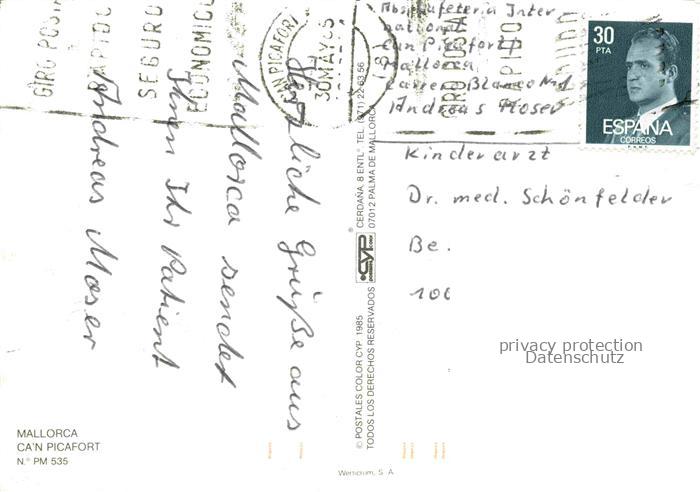 GIRO POSTAL
RAPIDO
SEGURO
ECONOMICO
CAN PICAFORT
30 MAY
Herzliche Grüße aus
Mallorca sendet
Ihnen Ihr Patient
Andreas Moser
national
Can Picafort
Mallorca
Andreas Moser
30
PTA
ESPAÑA
CORREOS
Kinderarzt
Dr. med. Schönfelder
Be.
100
privacy protection
Datenschutz
© POSTALES COLOR CYP. 1985
TODOS LOS DERECHOS RESERVADOS
CYP
CERDAÑA, 8 ENTL° TEL. (971) 22 63 56
07012 PALMA DE MALLORCA
MALLORCA
CA'N PICAFORT
N.° PM 535